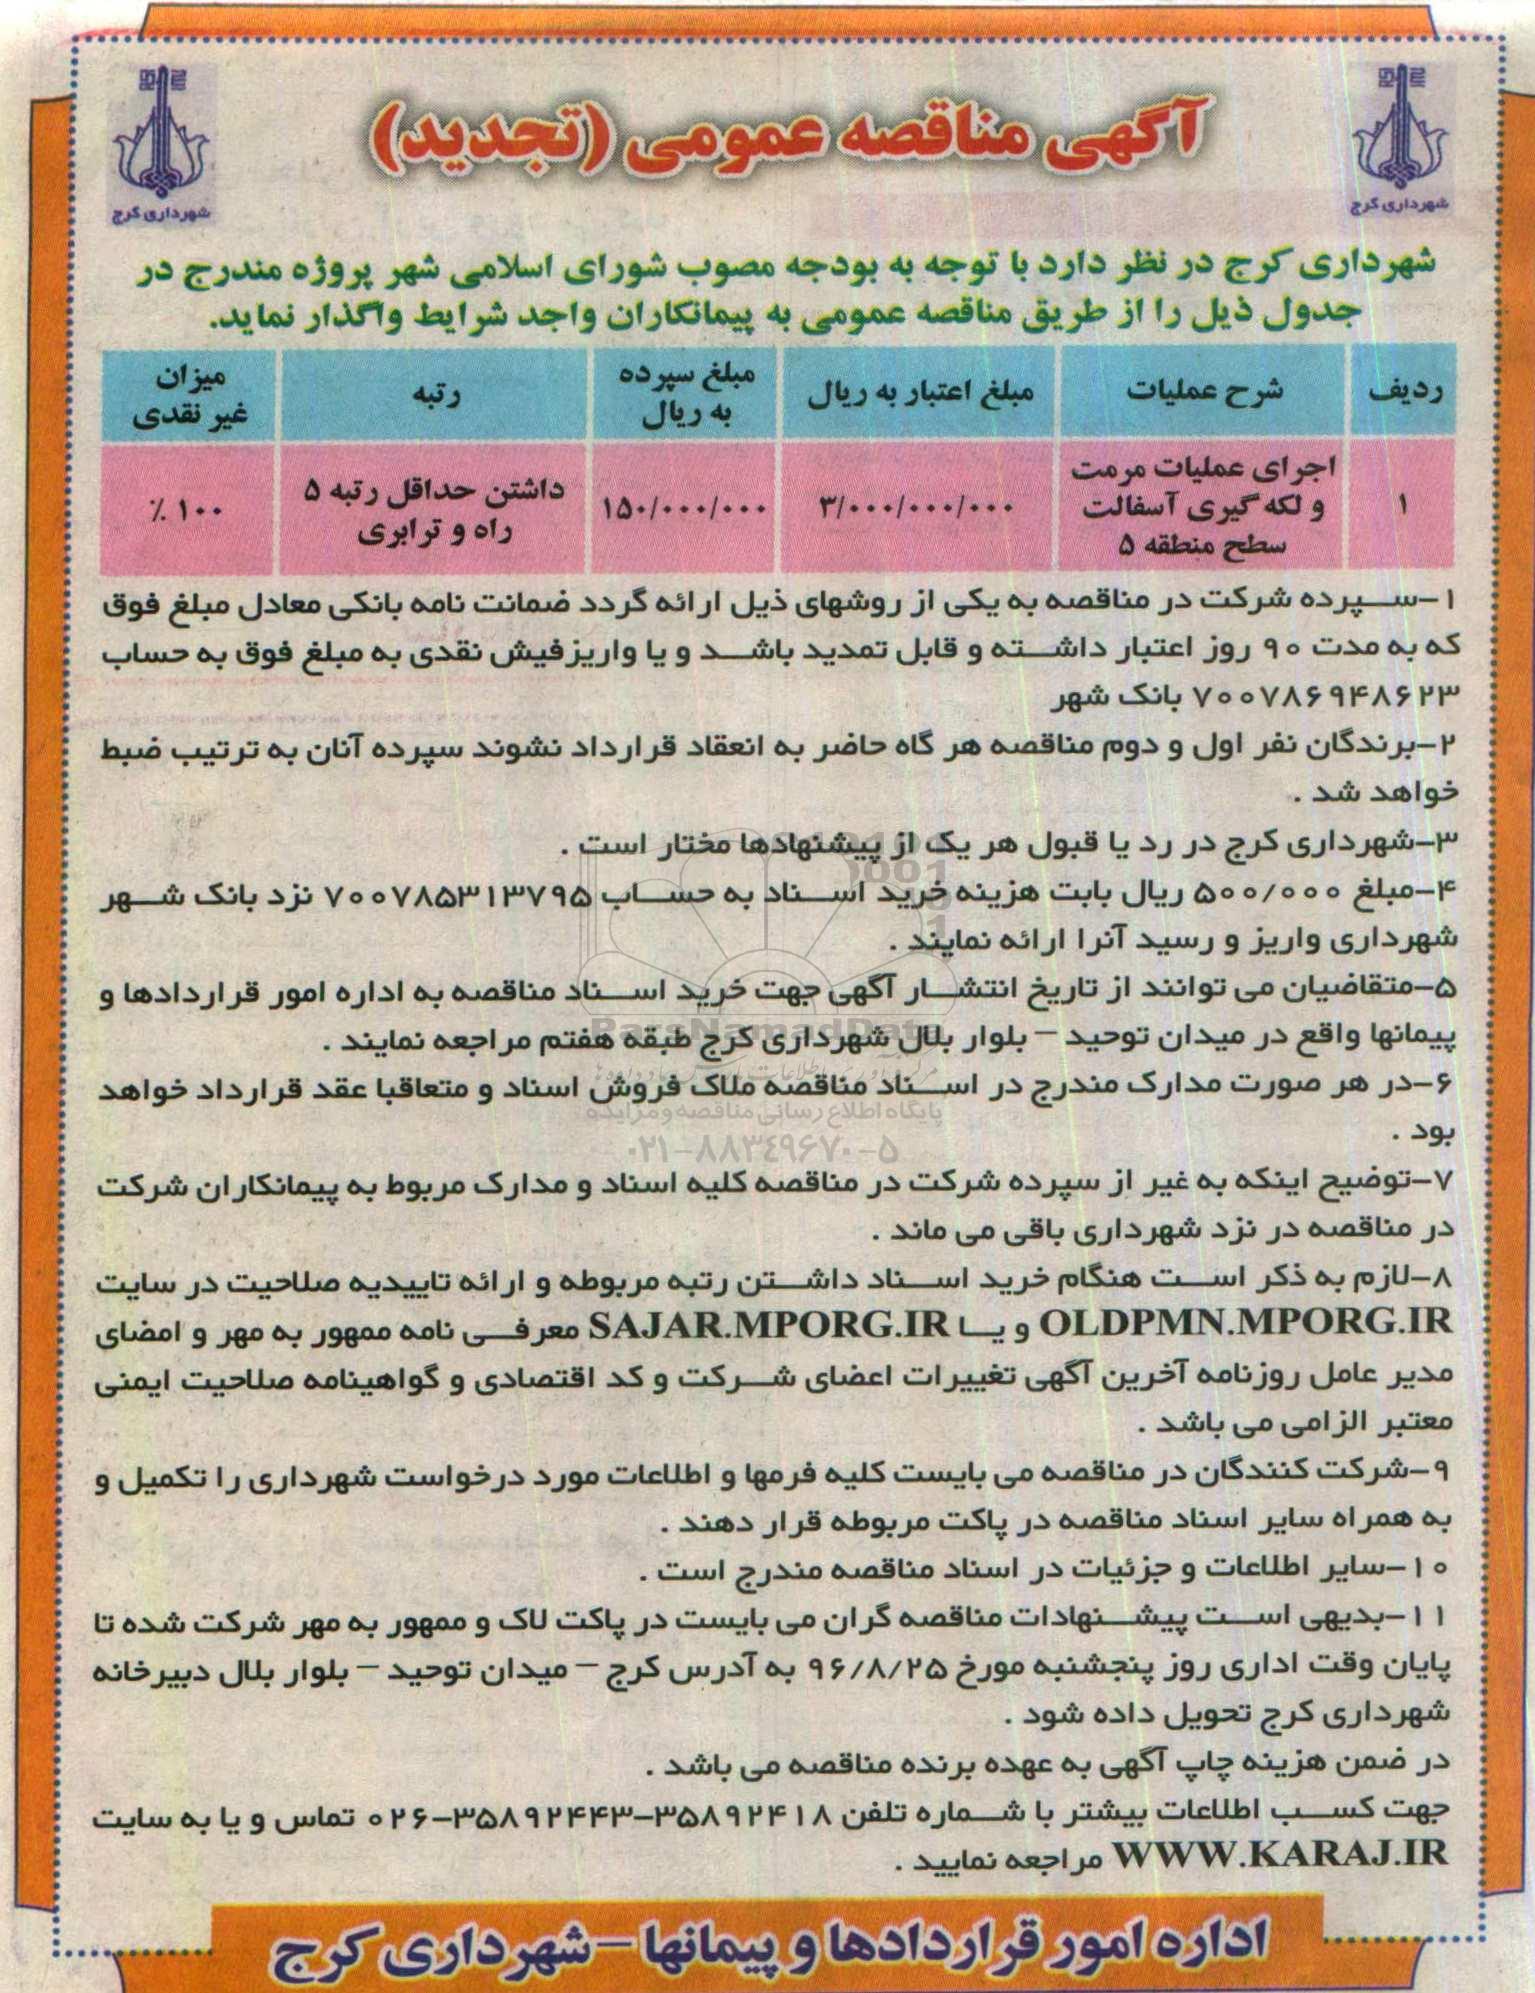 آگهی مناقصه عمومی (تجدید)
شهرداری کرج
شهرداری کرج
شهرداری کرج در نظر دارد با توجه به بودجه مصوب شورای اسلامی شهر پروژه مندرج در
جدول ذیل را از طریق مناقصه عمومی به پیمانکاران واجد شرایط واگذار نماید.
ردیف
شرح عملیات
مبلغ اعتبار به ریال
مبلغ سپرده
به ریال
رتبه
میزان
غیر نقدی
۱
اجرای عملیات مرمت
و لکه گیری آسفالت
سطح منطقه ۵
۳/۰۰۰/۰۰۰/۰۰۰
۱۵۰/۰۰۰/۰۰۰
داشتن حداقل رتبه ۵
راه و ترابری
۱۰۰ ٪
۱-سپرده شرکت در مناقصه به یکی از روشهای ذیل ارائه گردد ضمانت نامه بانکی معادل مبلغ فوق
که به مدت ۹۰ روز اعتبار داشته و قابل تمدید باشد و یا واریزفیش نقدی به مبلغ فوق به حساب
۷۰۰۷۸۶۹۴۸۶۲۳ بانک شهر
۲-برندگان نفر اول و دوم مناقصه هر گاه حاضر به انعقاد قرارداد نشوند سپرده آنان به ترتیب ضبط
خواهد شد .
۳-شهرداری کرج در رد یا قبول هر یک از پیشنهادها مختار است .
۴-مبلغ ۵۰۰/۰۰۰ ریال بابت هزینه خرید اسناد به حساب ۷۰۰۷۸۵۳۱۳۷۹۵ نزد بانک شهر
شهرداری واریز و رسید آنرا ارائه نمایند .
۵-متقاضیان می توانند از تاریخ انتشار آگهی جهت خرید اسناد مناقصه به اداره امور قراردادها و
پیمانها واقع در میدان توحید – بلوار بلال شهرداری کرج طبقه هفتم مراجعه نمایند .
ParsNamadData
۶-در هر صورت مدارک مندرج در اسناد مناقصه ملاک فروش اسناد و متعاقبا عقد قرارداد خواهد
بود .
پایگاه اطلاع رسانی مناقصه و مزایده
۰۲۱-۸۸۳۴۹۶۷۰-۵
۷-توضیح اینکه به غیر از سپرده شرکت در مناقصه کلیه اسناد و مدارک مربوط به پیمانکاران شرکت
در مناقصه در نزد شهرداری باقی می ماند .
۸-لازم به ذکر است هنگام خرید اسناد داشتن رتبه مربوطه و ارائه تاییدیه صلاحیت در سایت
OLDPMN.MPORG.IR و یا SAJAR.MPORG.IR معرفی نامه ممهور به مهر و امضای
مدیر عامل روزنامه آخرین آگهی تغییرات اعضای شرکت و کد اقتصادی و گواهینامه صلاحیت ایمنی
معتبر الزامی می باشد .
۹-شرکت کنندگان در مناقصه می بایست کلیه فرمها و اطلاعات مورد درخواست شهرداری را تکمیل و
به همراه سایر اسناد مناقصه در پاکت مربوطه قرار دهند .
۱۰-سایر اطلاعات و جزئیات در اسناد مناقصه مندرج است .
۱۱-بدیهی است پیشنهادات مناقصه گران می بایست در پاکت لاک و ممهور به مهر شرکت شده تا
پایان وقت اداری روز پنجشنبه مورخ ۹۶/۸/۲۵ به آدرس کرج – میدان توحید – بلوار بلال دبیرخانه
شهرداری کرج تحویل داده شود .
در ضمن هزینه چاپ آگهی به عهده برنده مناقصه می باشد .
جهت کسب اطلاعات بیشتر با شماره تلفن ۳۵۸۹۲۴۱۸-۳۵۸۹۲۴۴۳-۰۲۶ تماس و یا به سایت
WWW.KARAJ.IR مراجعه نمایید .
اداره امور قراردادها و پیمانها – شهرداری کرج